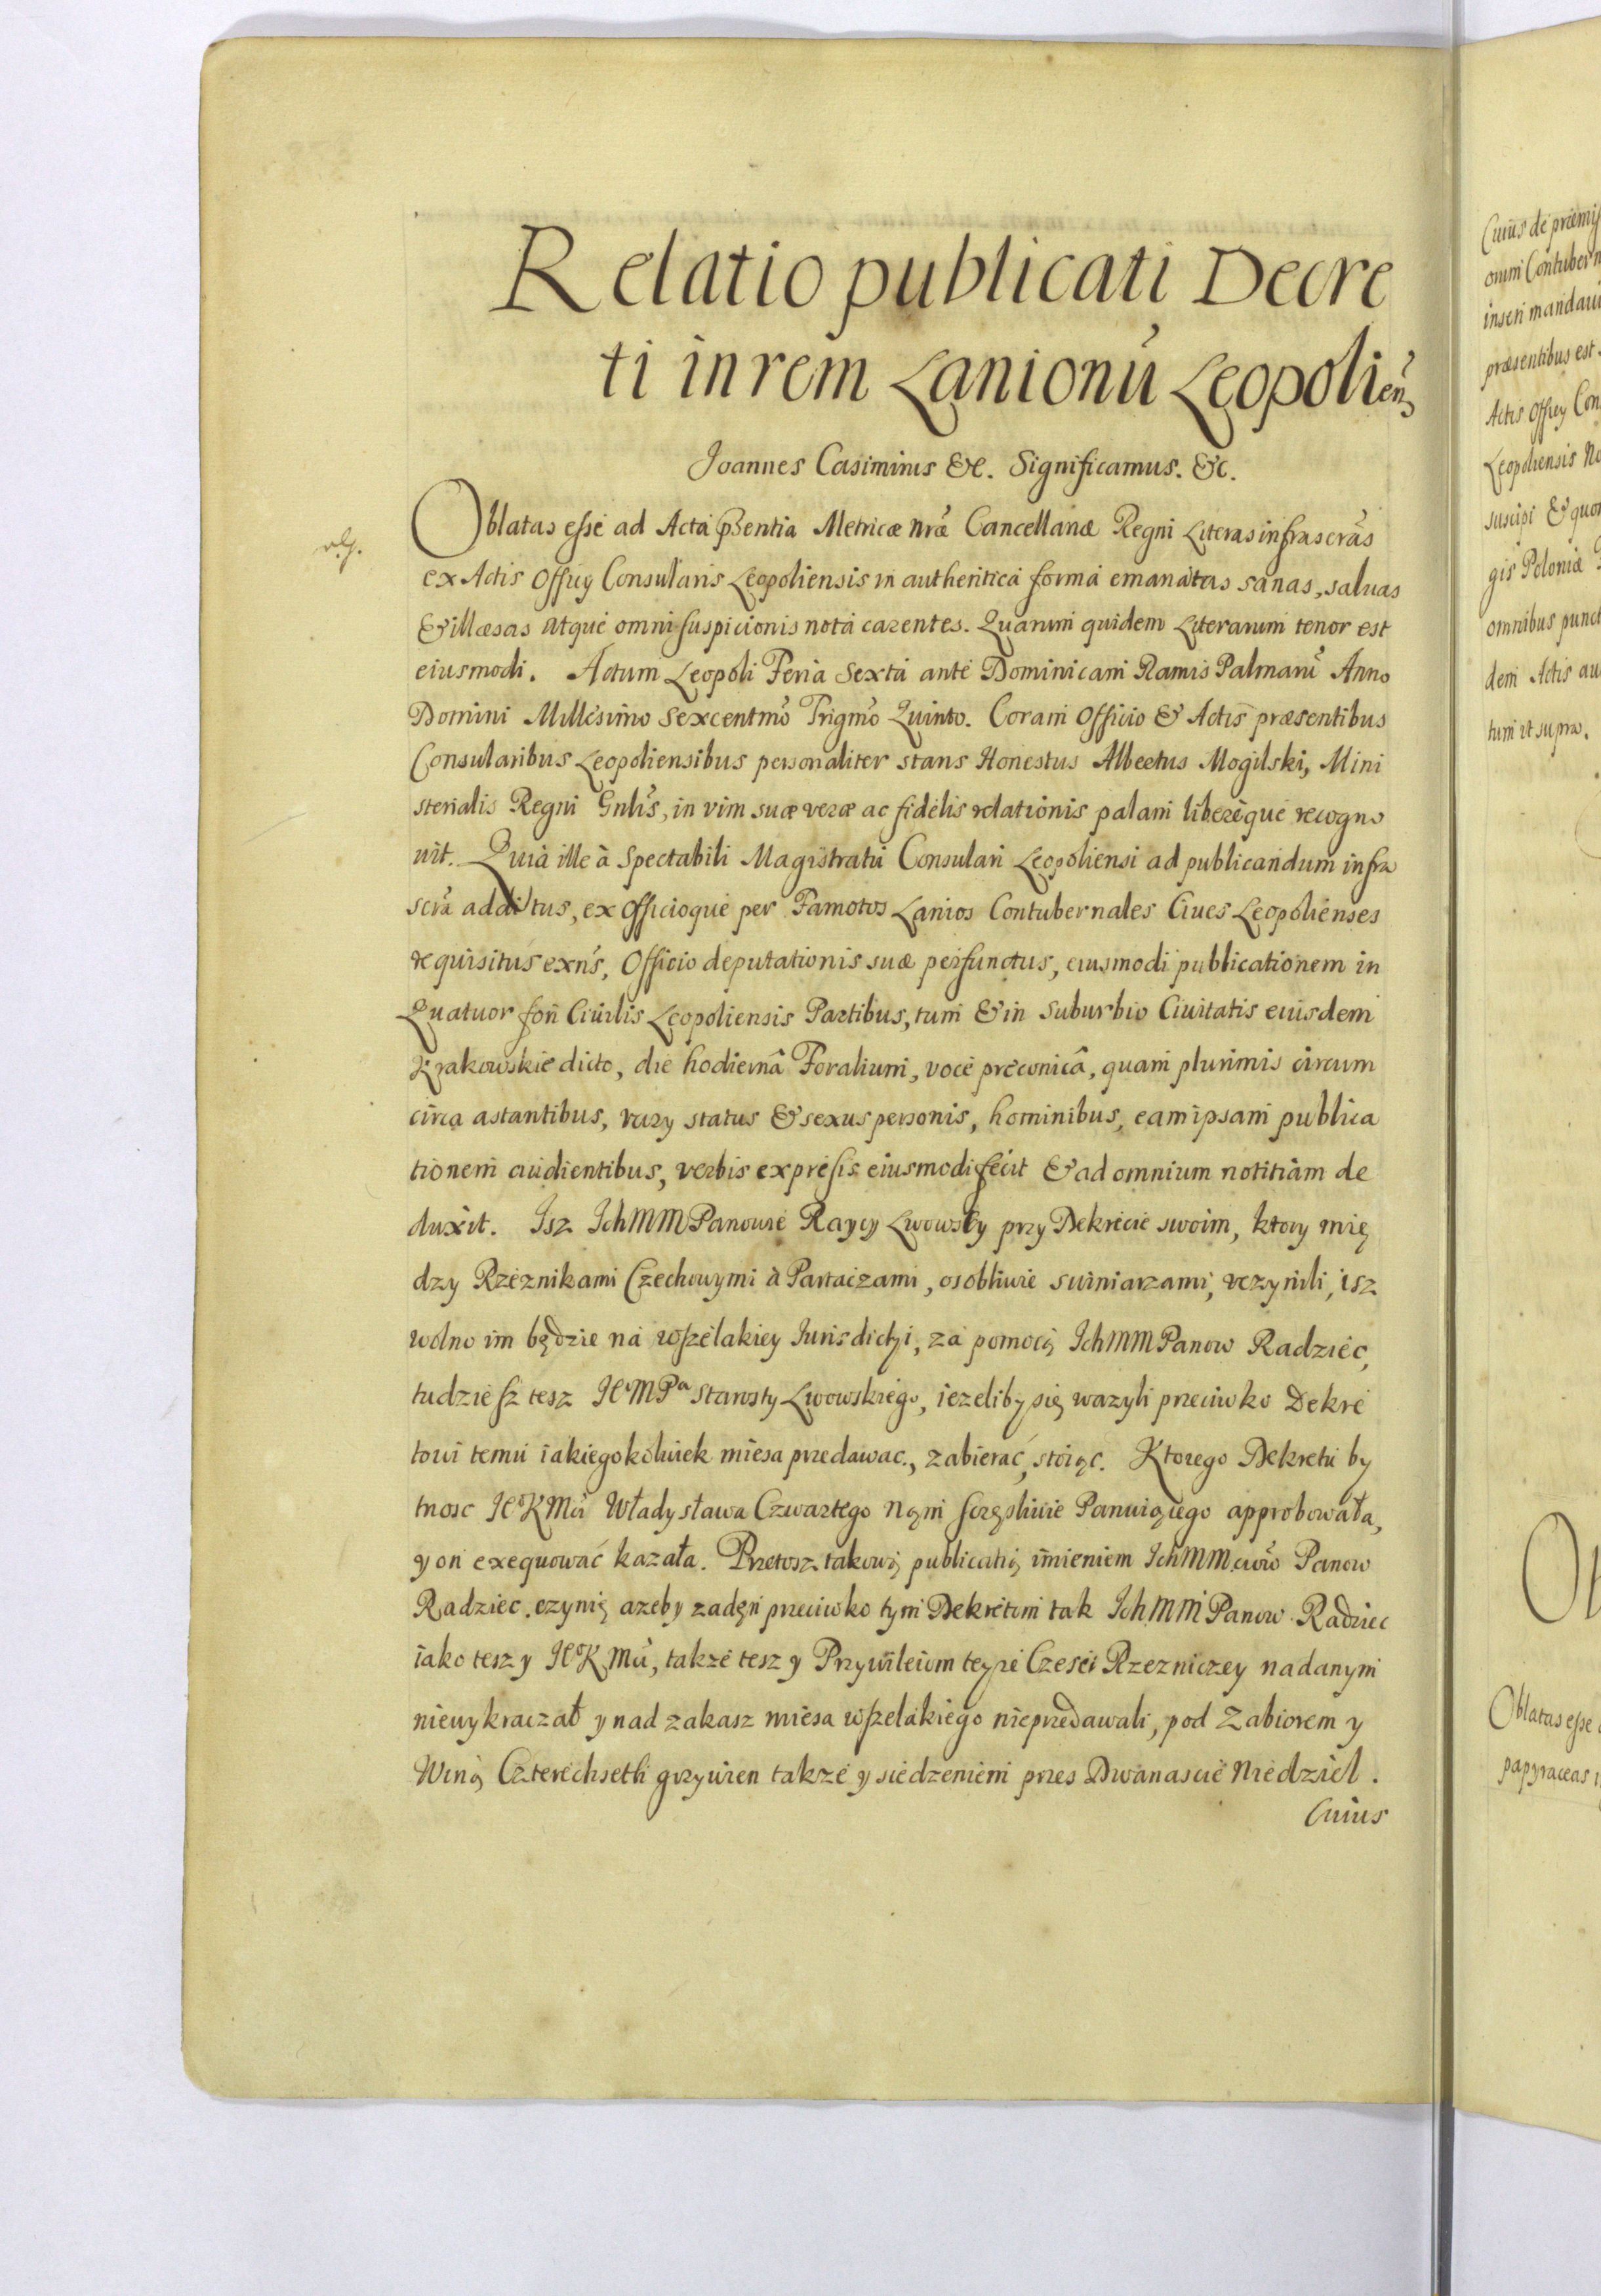 Relatio publicati Decre
ti in rem Lanionũ Leopolien̄
Joannes Casimirus &c. Significamus. &c.
Oblatas esse ad Acta pr̃sentia Metricæ nræ̃ Cancellariæ Regni Literas infrascrãs
ex Actis Officÿ Consularis Leopoliensis in authentica forma emanatas sanas, saluas
& illæsas atque omni suspicionis nota carentes. Quarum quidem Literarum tenor est
eiusmodi. Actum Leopoli Feria Sexta ante Dominicam Ramis Palmarũ Anno
Domini Millesimo Sexcentmõ Trigmõ Quinto. Coram Officio & Actis præsentibus
Consularibus Leopoliensibus personaliter stans Honestus Albertus Mogilski, Mini
sterialis Regni Gnlĩs, in vim suæ veræ ac fidelis relationis palam libereque recogno
uit. Quia ille à Spectabili Magistratu Consulari Leopoliensi ad publicandum infra
scrã additus, ex Officioque per Famatos Lanios Contubernales Ciues Leopolienses
requisitus exñs, Officio deputationis suæ perfunctus, eiusmodi publicationem in
Quatuor fori Ciuilis Leopoliensis Partibus, tum & in Suburbio Ciuitatis eiusdem
Krakowskie dicto, die hodiernâ Foralium, voce præconicâ, quam plurimis circum
circa astantibus, varÿ status & sexus personis, hominibus, eam ipsam publica
tionem audientibus, verbis expressis eiusmodi fecit & ad omnium notitiam de
duxit. Isz IchMM Panowie Raycy Lwowscy przy Dekrecie swoim, ktory mię
dzy Rzeznikami Czechowymi à Partaczami, osobliwie swiniarzami, vczynili, isz
wolno im będzie na wszelakiey Iurisdictÿi, za pomocą IchMM Panow Radziec,
tudziesz tesz IeᵒMPᵃ Starosty Lwowskiego, iezeliby się wazyli przeciwko Dekre
towi temu iakiegokolwiek miesa przedawac, zabierać, stoiąc. Ktorego Dekretu by
tnosc IeᵒKMci Władysława Czwartego Nąm sczęsliwie Panuiącego approbowała,
y on exequować kazała. Przetosz takową publicatią imieniem IchMM Panow
Radziec czynię azeby zaden przeciwko tym Dekretom tak IchMM Panow Radziec
iako tesz y IeᵒKMci, takze tesz y Przywileiom teyze Czesci Rzezniczey nadanym
niewykraczał y nad zakasz miesa wszelakiego nieprzedawali, pod Zabiorem y
Winą Czterechseth grzywien takze y siedzeniem przes Dwanascie Niedziel.
Cuius
Cuius de præmis
orum Contubern
inseri mandaui
præsentibus est.
Actis Officÿ Con
Leopoliensis No
suscipi & quo
gis Poloniæ
omnibus punct
dem Actis au
tum ut supra.
Ob
Oblatas esse
papyraceas